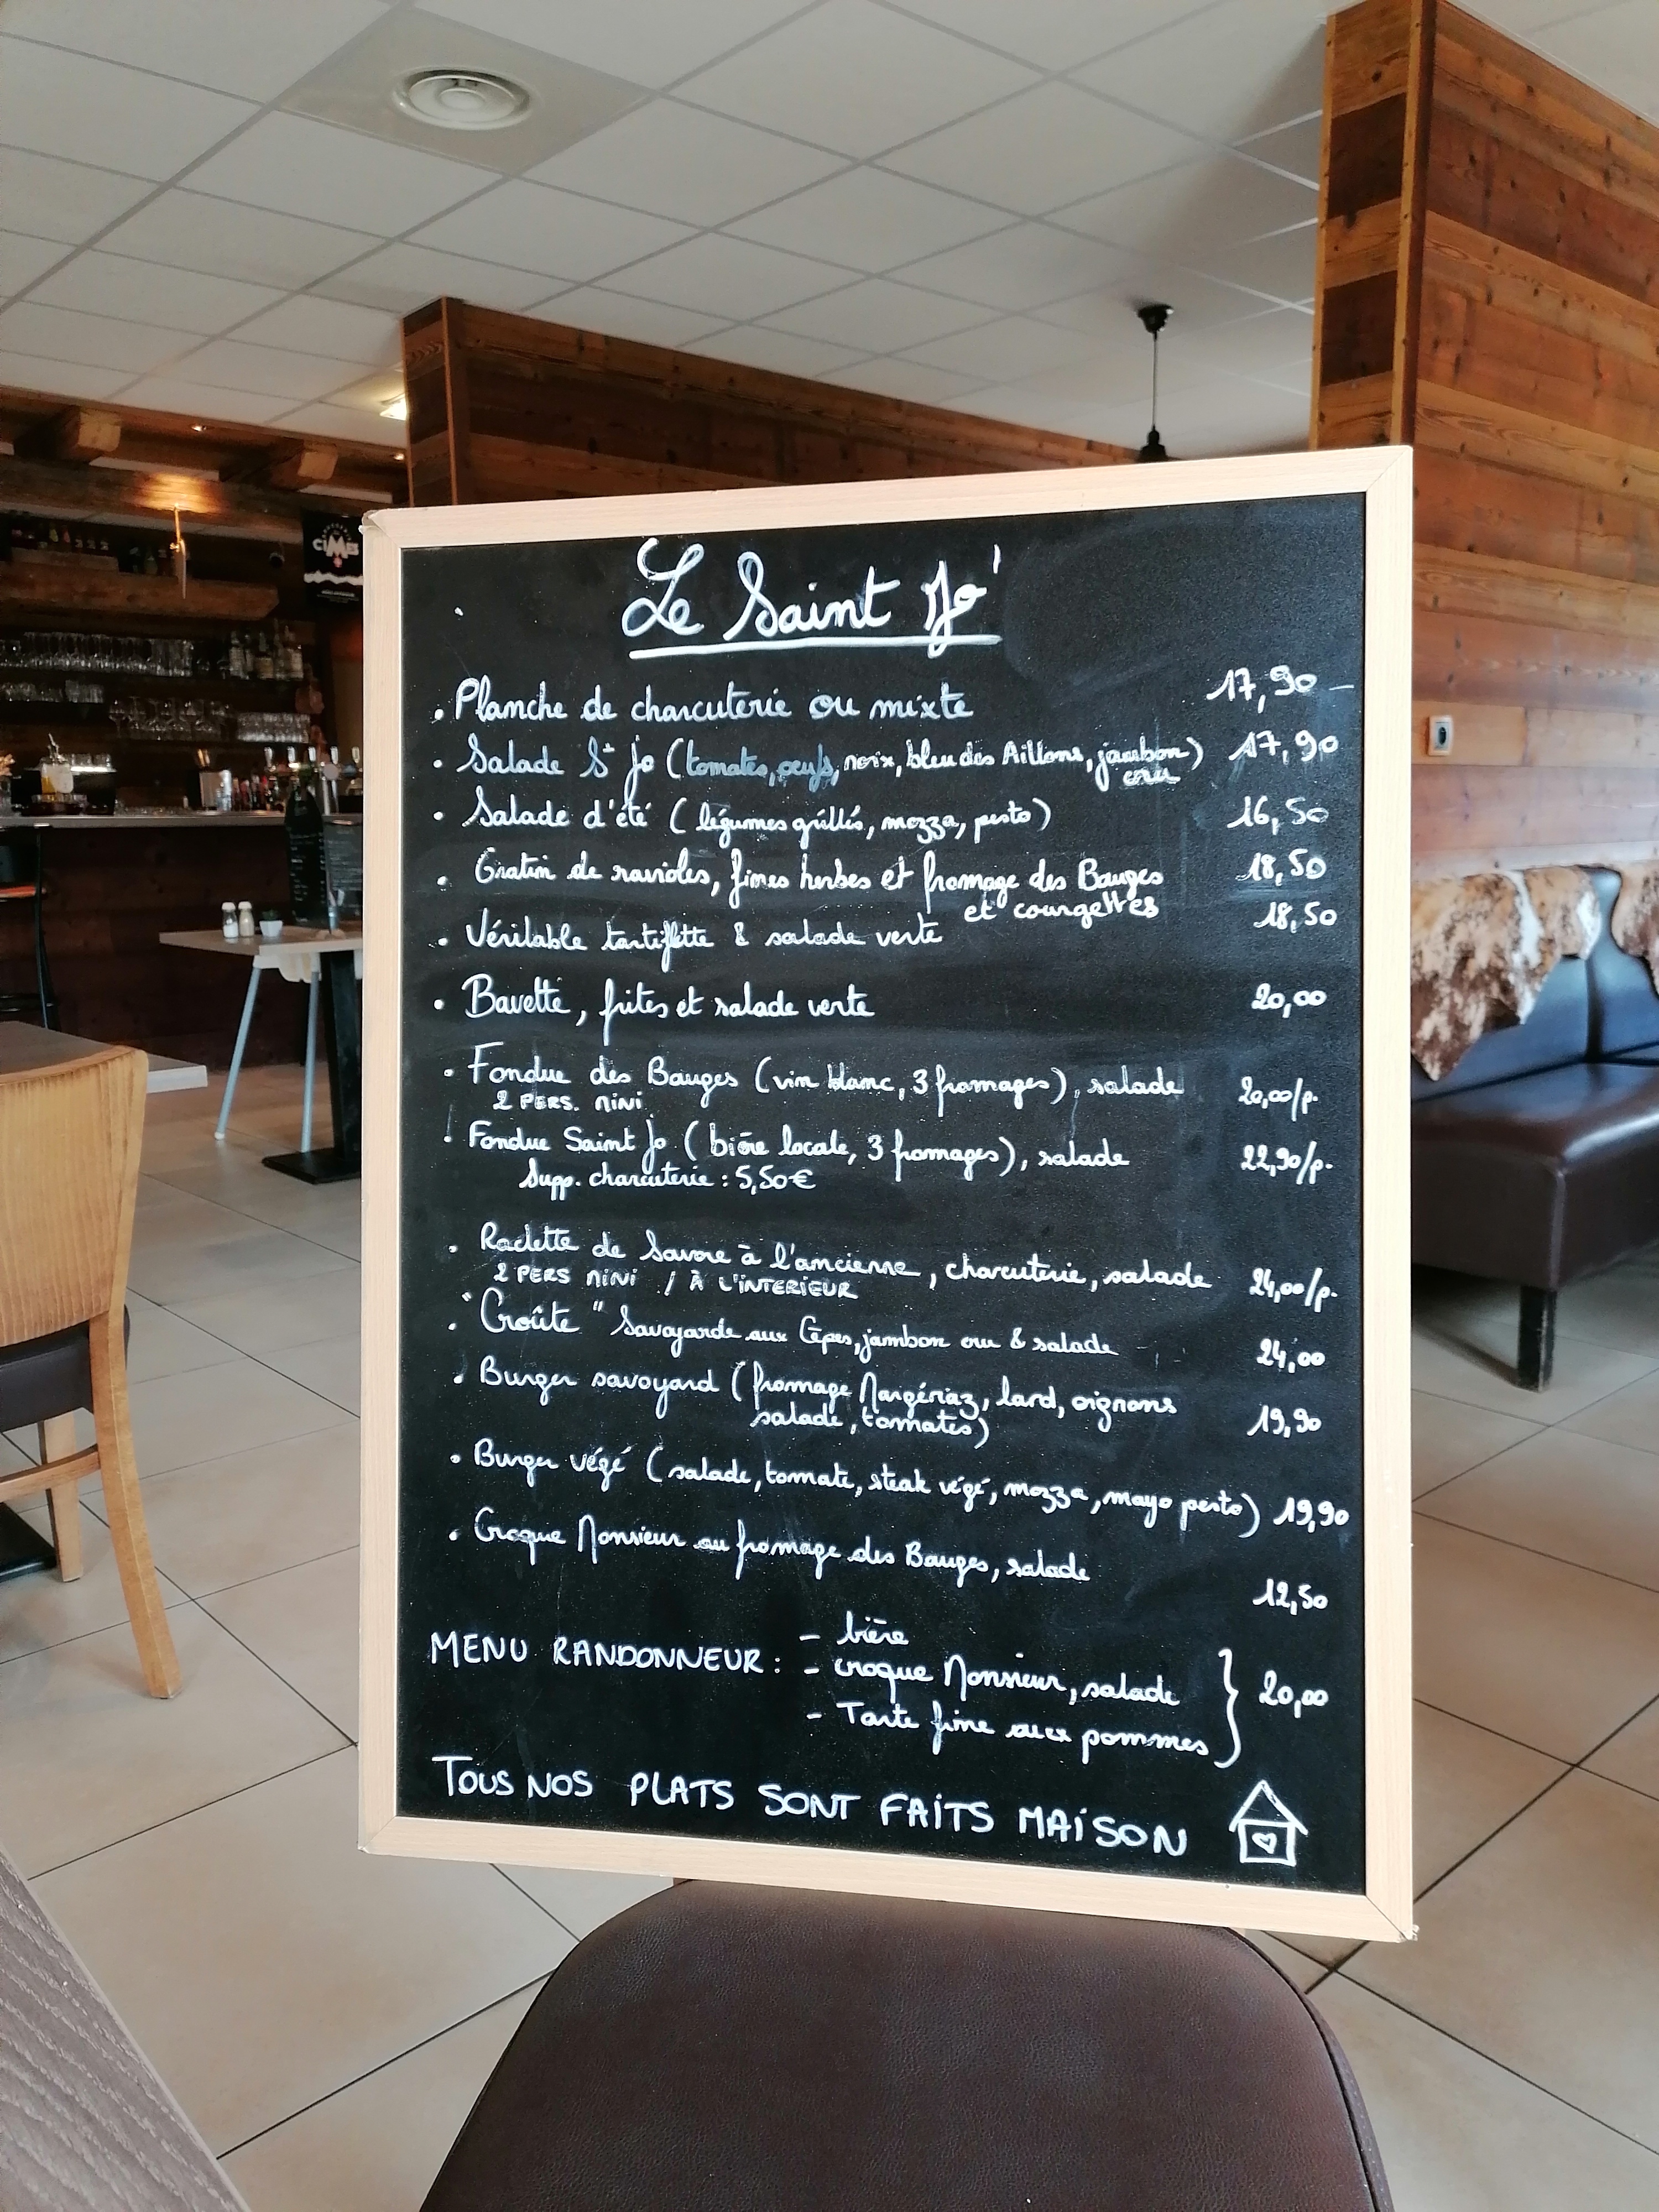 CIMES
Le Saint Jo'
. Planche de charcuterie ou mixte 17,90
. Salade St Jo (tomates, oeufs, noix, bleu des Aillons, jambon) 17,90
cru
. Salade d'été (légumes grillés, mozza, pesto) 16,50
. Gratin de ravioles, fines herbes et fromage des Bauges 18,50
et courgettes
. Véritable tartiflette & salade verte 18,50
. Bavette, frites et salade verte 20,00
. Fondue des Bauges (vin blanc, 3 fromages), salade 20,00/p.
2 PERS. MINI
. Fondue Saint Jo (bière locale, 3 fromages), salade 22,90/p.
Supp. charcuterie : 5,50€
. Raclette de Savoie à l'ancienne, charcuterie, salade 24,00/p.
2 PERS MINI / À L'INTERIEUR
. "Croûte" Savoyarde aux Cèpes, jambon cru & salade 24,00
. Burger savoyard (fromage Margériaz, lard, oignons
salade, tomates) 19,90
. Burger végé (salade, tomate, steak végé, mozza, mayo pesto) 19,90
. Croque Monsieur au fromage des Bauges, salade
12,50
MENU RANDONNEUR : - bière
- croque Monsieur, salade } 20,00
- Tarte fine aux pommes
TOUS NOS PLATS SONT FAITS MAISON